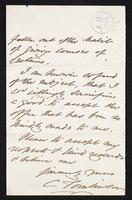 fallen out of the habit
of giving courses of
lectures.
I am however so fond
of the subject that I
not willingly
a good to accept the
offer that has been so
kindly made to me.
Please to accept my
respect & kind regards
& believe me
Yours
C Tomlinson